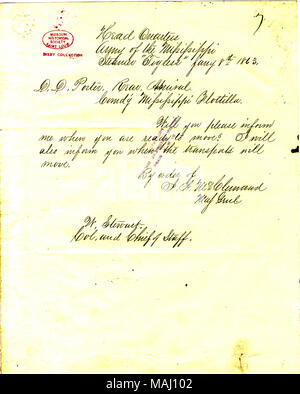 7
MISSOURI
HISTORICAL
SOCIETY
SAINT LOUIS
BIXBY COLLECTION
Head Quarters
Army of the Mississippi
Steamer "Tigress" Jany 8th 1863.
D. D. Porter, Rear Admiral
Comdg Mississippi Flottilla.
Will you please inform
me when you are ready to move? I will
also inform you when the transports will
move.
By order of
McClernand
Maj Genl
W. Stewart
Col. and Chief of Staff.
alamy
Image ID: MAJ102
www.alamy.com